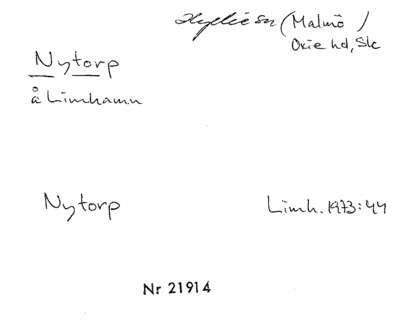 Hyllie sn (Malmö)
Oxie hd, Sk
Nytorp
å Limhamn
Nytorp
Limh. 1973:44
Nr 21914